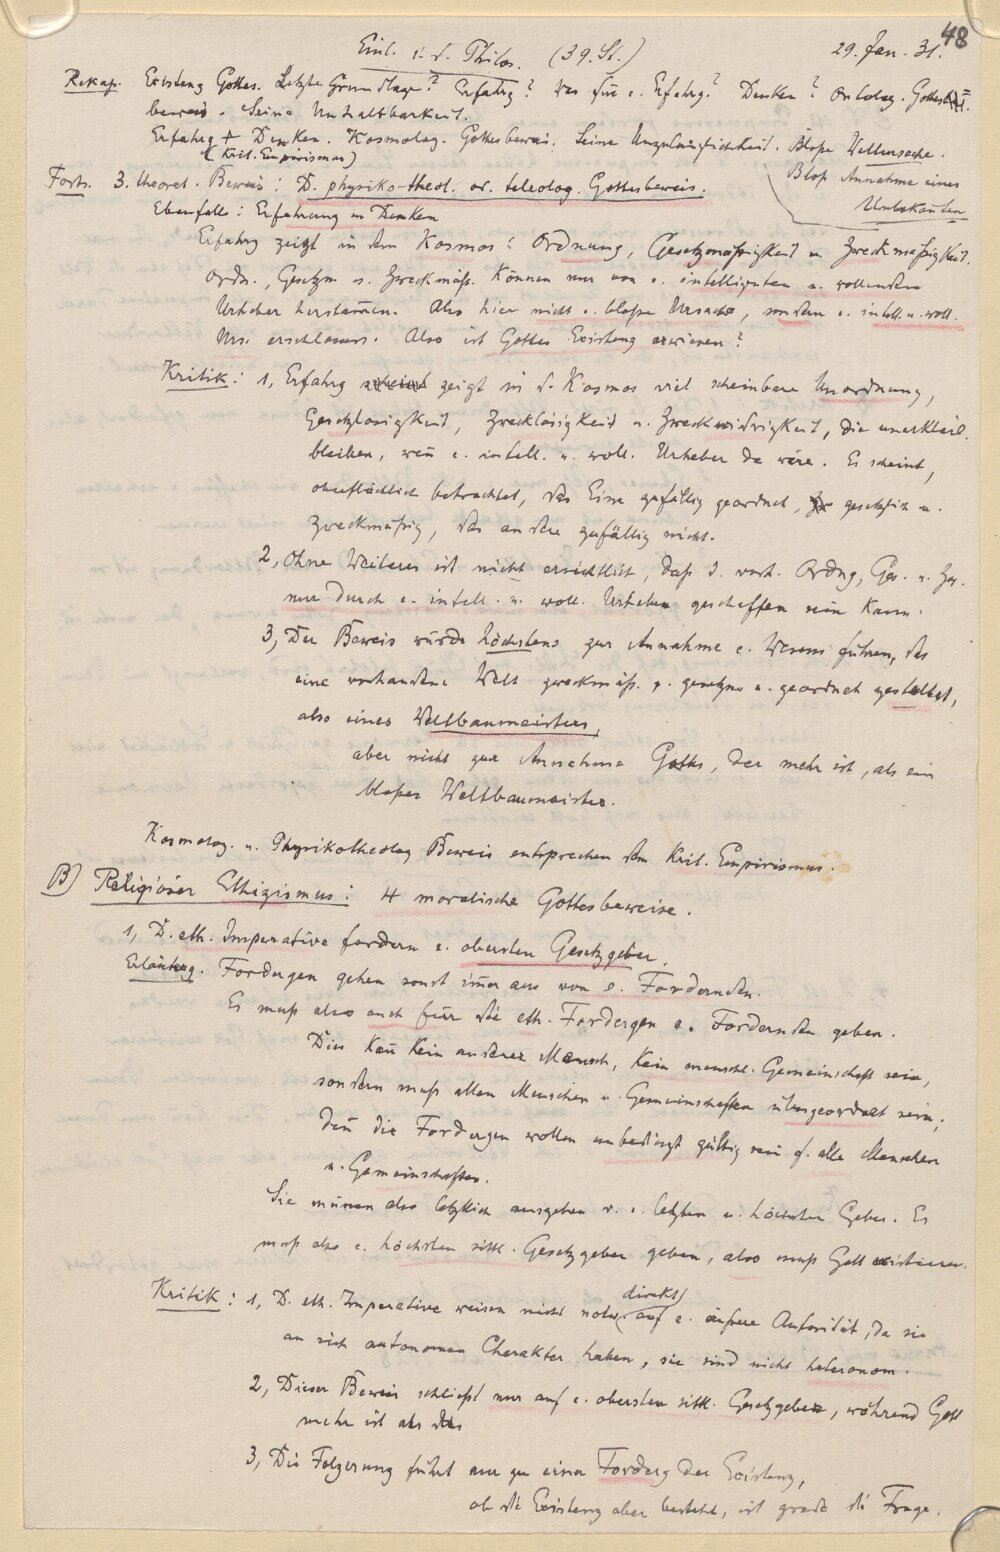 48
Einl. i. d. Philos. (39. St.) 29. Jan. 31.
Rekap. Existenz Gottes. Letzte Grundlage? Erfahrg? Was für e. Erfahrg? Denken? Ontolog. Gottes-
beweis. Seine Unhaltbarkeit.
Erfahrg + Denken. Kosmolog. Gottesbeweis. Seine Unzulänglichkeit. Bloße Weltursache.
(Krit. Empirismus) Bloß Annahme eines
Unbekannten
Forts. 3. theoret. Beweis: D. physiko-theol. od. teleolog. Gottesbeweis.
Ebenfalls: Erfahrung u. Denken
Erfahrg zeigt in dem Kosmos: Ordnung, Gesetzmäßigkeit u. Zweckmäßigkeit.
Ordn., Gesetzm. u. Zweckmäß. können nur von e. intelligenten u. wollenden
Urheber herstammen. Also hier nicht e. bloße Ursache, sondern e. intell. u. woll.
Urs. erschlossen. Also ist Gottes Existenz erwiesen?
Kritik: 1, Erfahrg zeigt in d. Kosmos viel scheinbare Unordnung,
Gesetzlosigkeit, Zwecklosigkeit u. Zweckwidrigkeit, die unerklärl.
bleiben, wenn e. intell. u. woll. Urheber da wäre. Es scheint,
oberflächlich betrachtet, das Eine zufällig geordnet, gesetzlich u.
zweckmäßig, das andere zufällig nicht.
2, Ohne Weiteres ist nicht ersichtlich, daß d. vorh. Ordng, Ges. u. Zw.
nur durch e. intell. u. woll. Urheber geschaffen sein kann.
3, Der Beweis würde höchstens zur Annahme e. Wesens führen, das
eine vorhandene Welt zweckmäß. gesetzm. u. geordnet gestaltet,
also eines Weltbaumeisters,
aber nicht zur Annahme Gottes, der mehr ist, als ein
bloßer Weltbaumeister.
Kosmolog. u. Physikotheolog Beweis entsprechen dem Krit. Empirismus.
B) Religiöser Ethizismus: 4 moralische Gottesbeweise.
1, D. eth. Imperative fordern e. obersten Gesetzgeber.
Erläuterg. Fordergen gehen sonst immer aus von e. Fordernden.
Es muß also auch für die eth. Fordergen e. Fordernden geben.
Dies kann kein anderer Mensch, kein menschl. Gemeinschaft sein,
sondern muß allen Menschen u. Gemeinschaften übergeordnet sein;
denn die Fordergen wollen unbedingt gültig sein f. alle Menschen
u. Gemeinschaften.
Sie müssen also letztlich ausgehen v. e. letzten u. höchsten Geber. Es
muß also e. höchsten sittl. Gesetzgeber geben, also muß Gott existieren.
Kritik: 1, D. eth. Imperative weisen nicht notw. direkt auf e. äußere Autorität, da sie
an sich autonomen Charakter haben, sie sind nicht heteronom.
2, Dieser Beweis schließt nur auf e. obersten sittl. Gesetzgeber, während Gott
mehr ist als das
3, Die Folgerung führt nur zu einer Forderg der Existenz,
ob die Existenz aber besteht, ist grade die Frage.